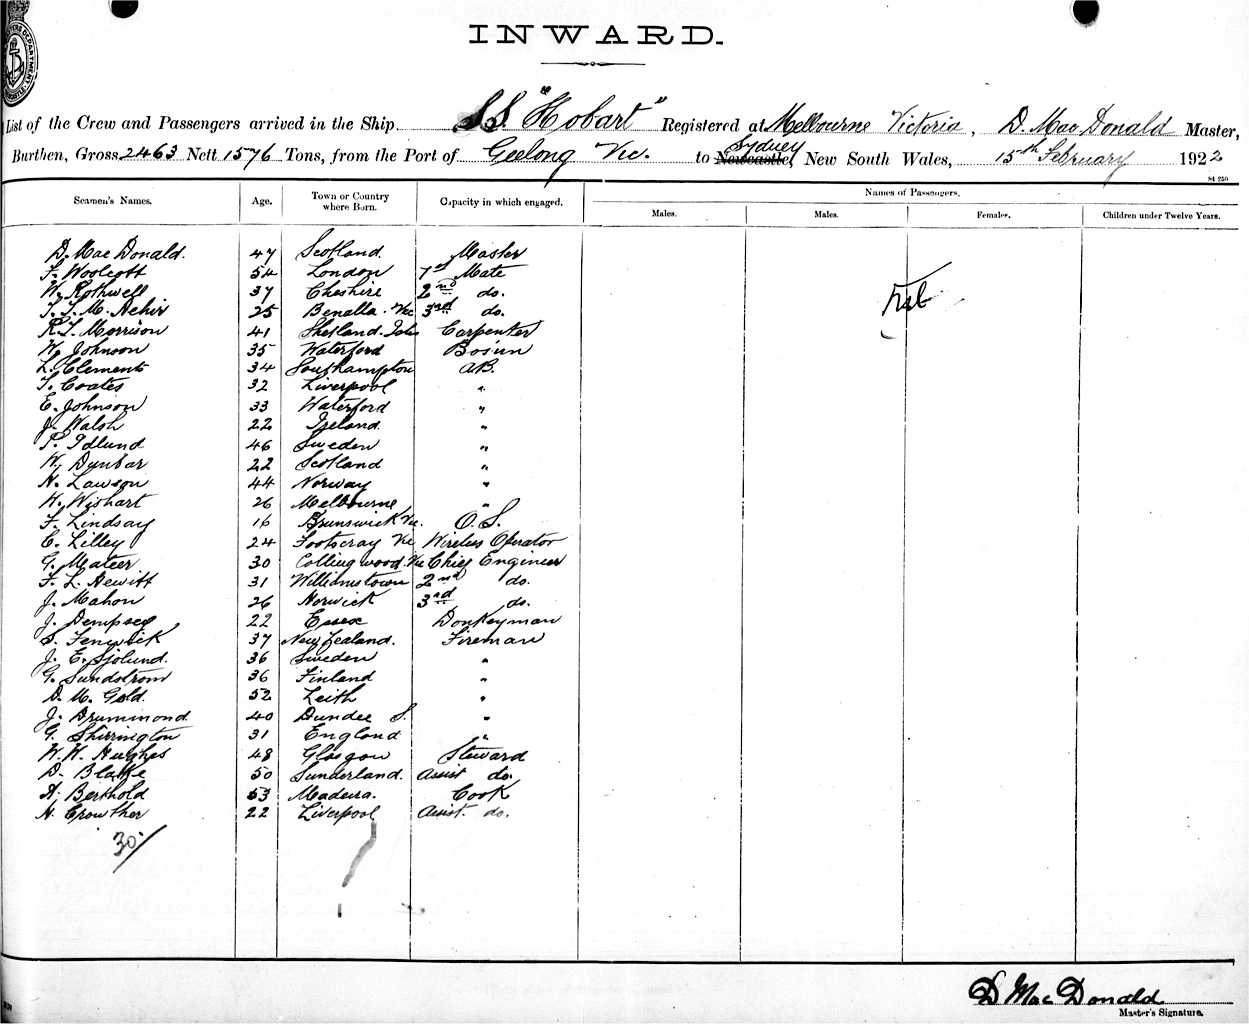 INWARD.
List of the Crew and Passengers arrived in the Ship S.S. "Hobart" Registered at Melbourne Victoria, D. Mac Donald Master,
Burthen, Gross 2463 Nett 1576 Tons, from the Port of Geelong Vic. to Newcastle, Sydney New South Wales, 15th February 1922
Seamen's Names. Age. Town or Country where Born. Capacity in which engaged. Names of Passengers.
Males. Males. Females. Children under Twelve Years.
D. Mac Donald. 47 Scotland. Master
F. Woolcott 54 London 1st Mate
W. Rothwell 37 Cheshire 2nd do.
25 Benalla. Vic 3rd do.
R. T. Morrison 41 Shetland. Isles Carpenter
W. Johnson 35 Waterford Bos'un
L. Clements 34 Southampton A.B.
T. Coates 32 Liverpool "
E. Johnson 33 Waterford "
J. Walsh 22 Ireland "
P. Idlund 46 Sweden "
W. Dunbar 22 Scotland "
H. Lawson 44 Norway "
W. Wishart 26 Melbourne "
F. Lindsay 16 Brunswick Vic. O.S.
C. Lilley 24 Footscray Vic Wireless Operator
G. Mateer 30 Collingwood. Vic Chief Engineer
F. L. Hewitt 31 Williamstown 2nd do.
J. Mahon 26 Norwick 3rd do.
J. Dempsey 22 Essex Donkeyman
S. Fenwick 37 New Zealand. Fireman
J. E. Sjolund. 36 Sweden "
G. Sundstrom 36 Finland "
D. M. Gold. 52 Leith "
J. Drummond 40 Dundee S. "
G. Shirrington 31 England "
W. W. Hughes 48 Glasgow Steward
D. Blake 50 Sunderland. Assist do.
A. Berthold 53 Madeira. Cook
H. Crowther 22 Liverpool Assist. do.
30/
D Mac Donald
Master's Signature.